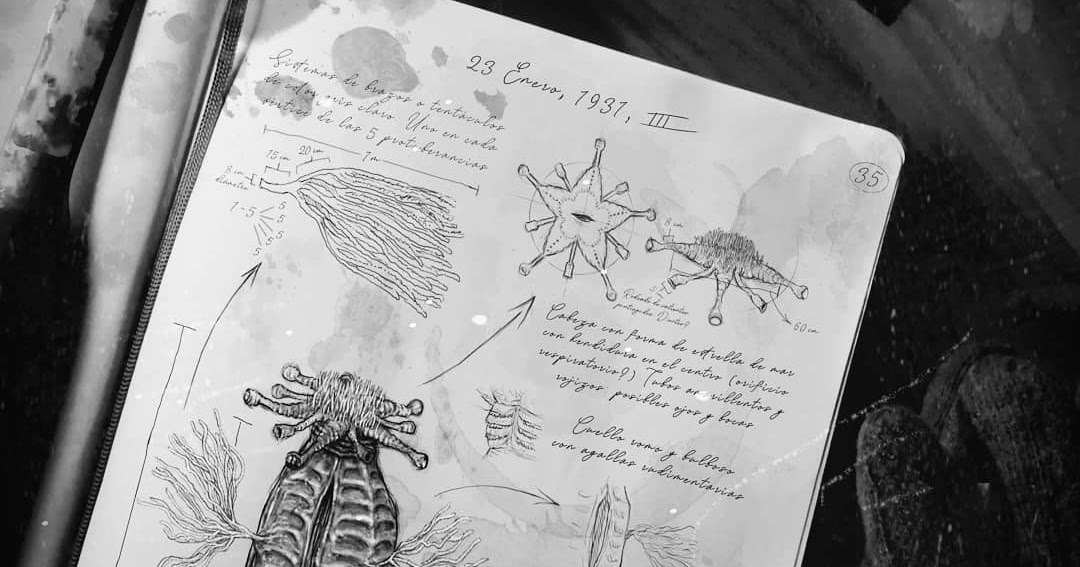 23 Enero, 1931, III
35
Sistemas de brazos o tentáculos
de color gris claro. Uno en cada
vértice de las 5 protuberancias
7 m
20 cm
75 cm
8 cm
diametro
1-5
5
5
5
5
5
8 cm
60 cm
Cabeza con forma de estrella de mar
con hendidura en el centro (orificio
respiratorio?) Tubos amarillentos y
rojizos: posibles ojos y bocas
Cuello romo y bulboso
con agallas rudimentarias